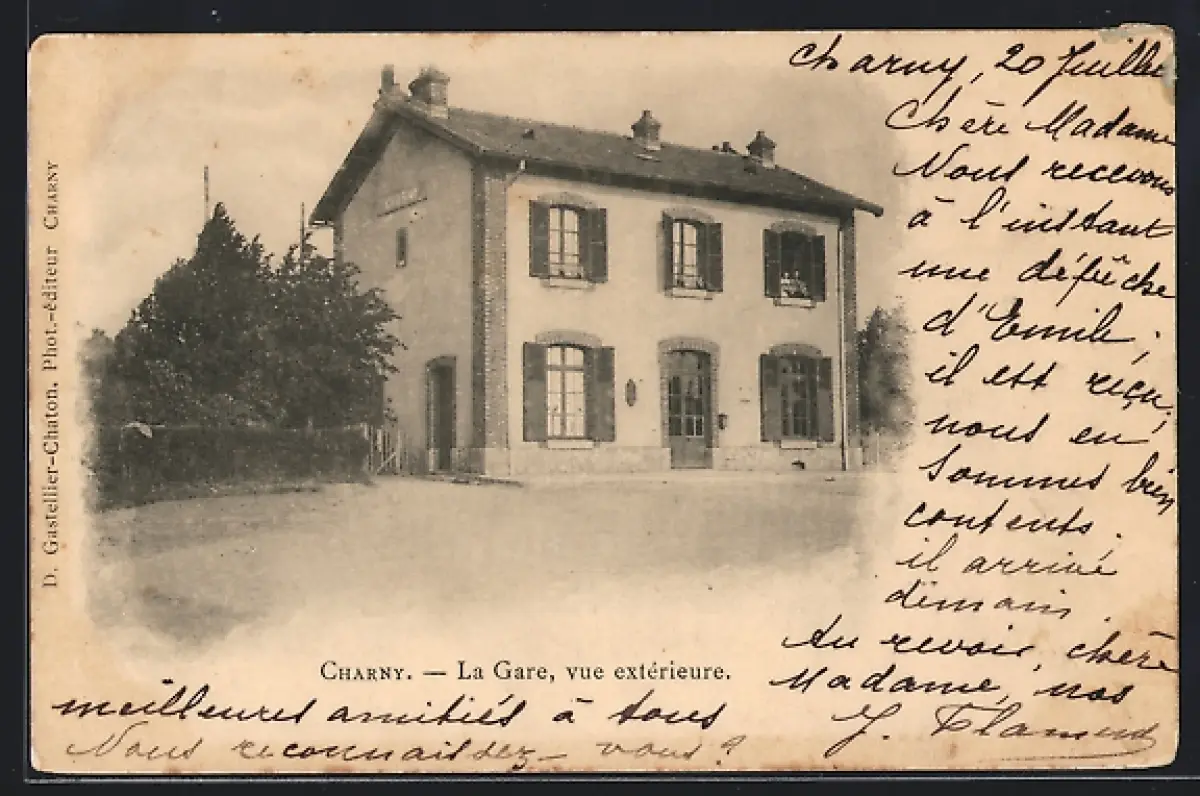 D. Gastellier-Chaton, Phot.-éditeur CHARNY
Charny, 20 Juillet
Chère Madame
Nous recevons
à l'instant
une dépêche
d'Emile;
il est reçu,
nous en
sommes bien
contents.
il arrive
demain.
Au revoir, chère
Madame, nos
meilleures amitiés à tous
J. Flamend
Nous reconnaissez-vous?
CHARNY. — La Gare, vue extérieure.